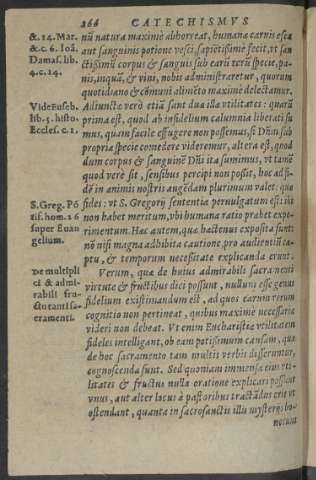 266 CATECHISMVS
& 14. Mar.
& c. 6. Ioã.
Damas. lib.
4. c. 14.
Vide Euseb.
lib. 5. histo.
Eccles. c. 1.
S. Greg. Põ
tif. hom. 26
super Euan
gelium.
De multipli
ci & admi-
rabili fru-
ctu tanti sa-
cramenti.
nũ natura maximè abhorreat, humana carnis esca
aut sanguinis potione vesci, sapiẽtissimè fecit, vt san
ctissimũ corpus & sanguis sub earũ rerũ specie, pa-
nis, inquã, & vini, nobis administraretur, quorum
quotidiano & cõmuni alimẽto maximè delectamur.
Adiunctæ verò etiã sunt duæ illa vtilitates: quarũ
prima est, quod ab infidelium calumnia liberati su
mus, quam facile effugere non possemus, si Dñm sub
propria specie comedere videremur, altera est, quod
dum corpus & sanguinẽ Dñi ita sumimus, vt tamẽ
quod verè sit, sensibus percipi non possit, hoc ad fi-
dẽ in animis nostris augẽdam plurimum valet: quæ
fides: vt S. Gregorij sententia peruulgatum est: ibi
non habet meritum, vbi humana ratio præbet expe-
rimentum. Hæc autem, quæ hactenus exposita sunt:
nõ nisi magna adhibita cautione, pro audientiũ ca-
ptu, & temporum necessitate explicanda erunt.
Verum, quæ de huius admirabili sacramenti
virtute & fructibus dici possunt, nullum esse genus
fidelium existimandum est, ad quos earum rerum
cognitio non pertineat, quibus maximè necessaria
videri non debeat. Vt enim Eucharistiæ vtilitatem
fideles intelligant, ob eam potissimum causam, quæ
de hoc sacramento tam multis verbis disseruntur,
cognoscenda sunt. Sed quoniam immensæ eius vti-
litates & fructus nulla oratione explicari possunt
vnus, aut alter locus à pastoribus tractãdus erit vt
ostendant, quanta in sacrosanctis illis mysterijs bo-
norum